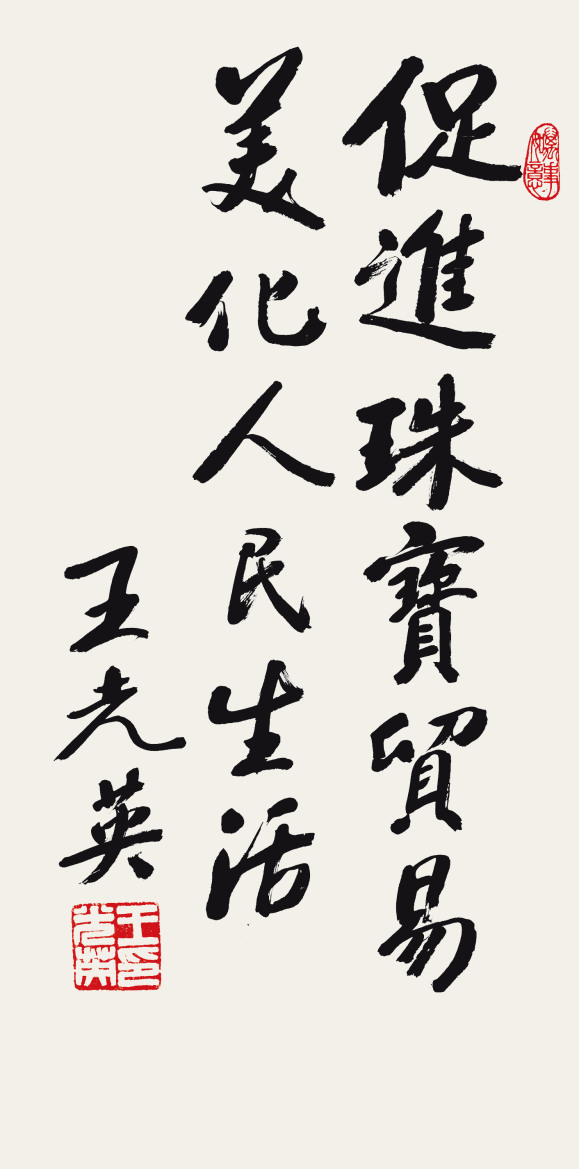 促進珠寶貿易
美化人民生活
王光英
王光英印